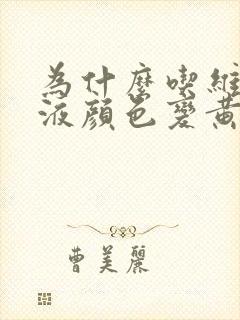 為什麼喫維
液顏色變黃
曹美麗